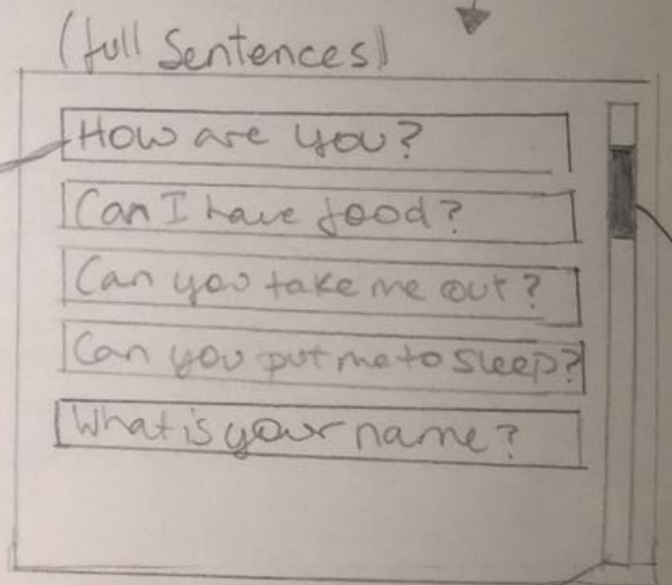 (full Sentences)
How are you?
Can I have food?
Can you take me out?
Can you put me to sleep?
What is your name?